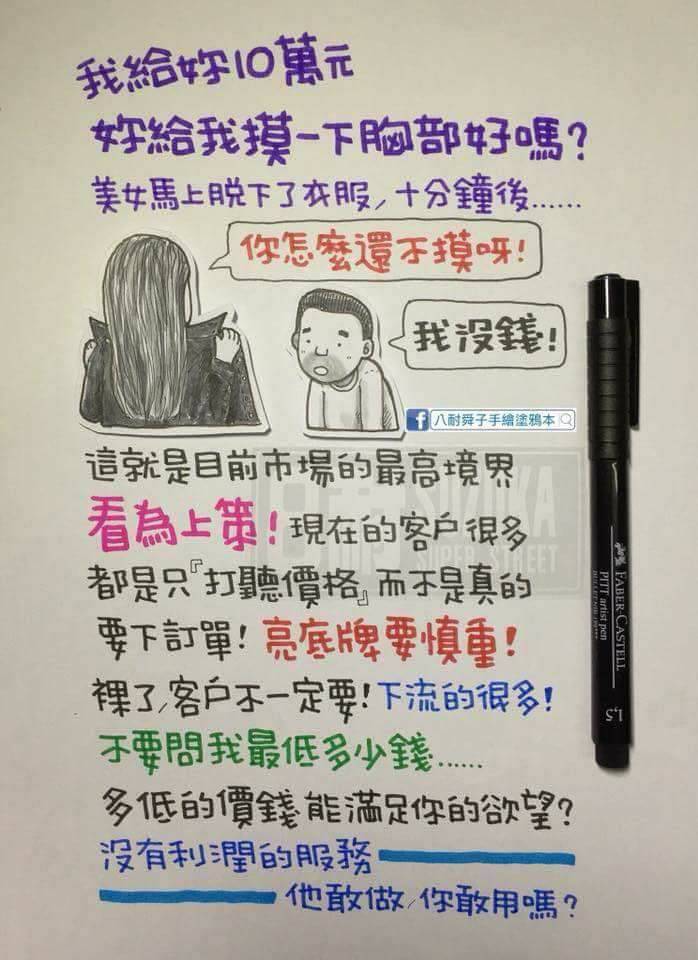 我給妳10萬元
妳給我摸一下胸部好嗎?
美女馬上脫下了衣服,十分鐘後......
你怎麼還不摸呀!
我沒錢!
f 八耐舜子手繪塗鴉本
這就是目前市場的最高境界
看為上策!現在的客户很多
都是只『打聽價格』而不是真的
要下訂單!亮底牌要慎重!
裸了,客户不一定要!下流的很多!
不要問我最低多少錢......
多低的價錢能滿足你的欲望?
沒有利潤的服務
他敢做,你敢用嗎?
SUZUKA
SUPER STREET
FABER-CASTELL
PITT artist pen
1,5